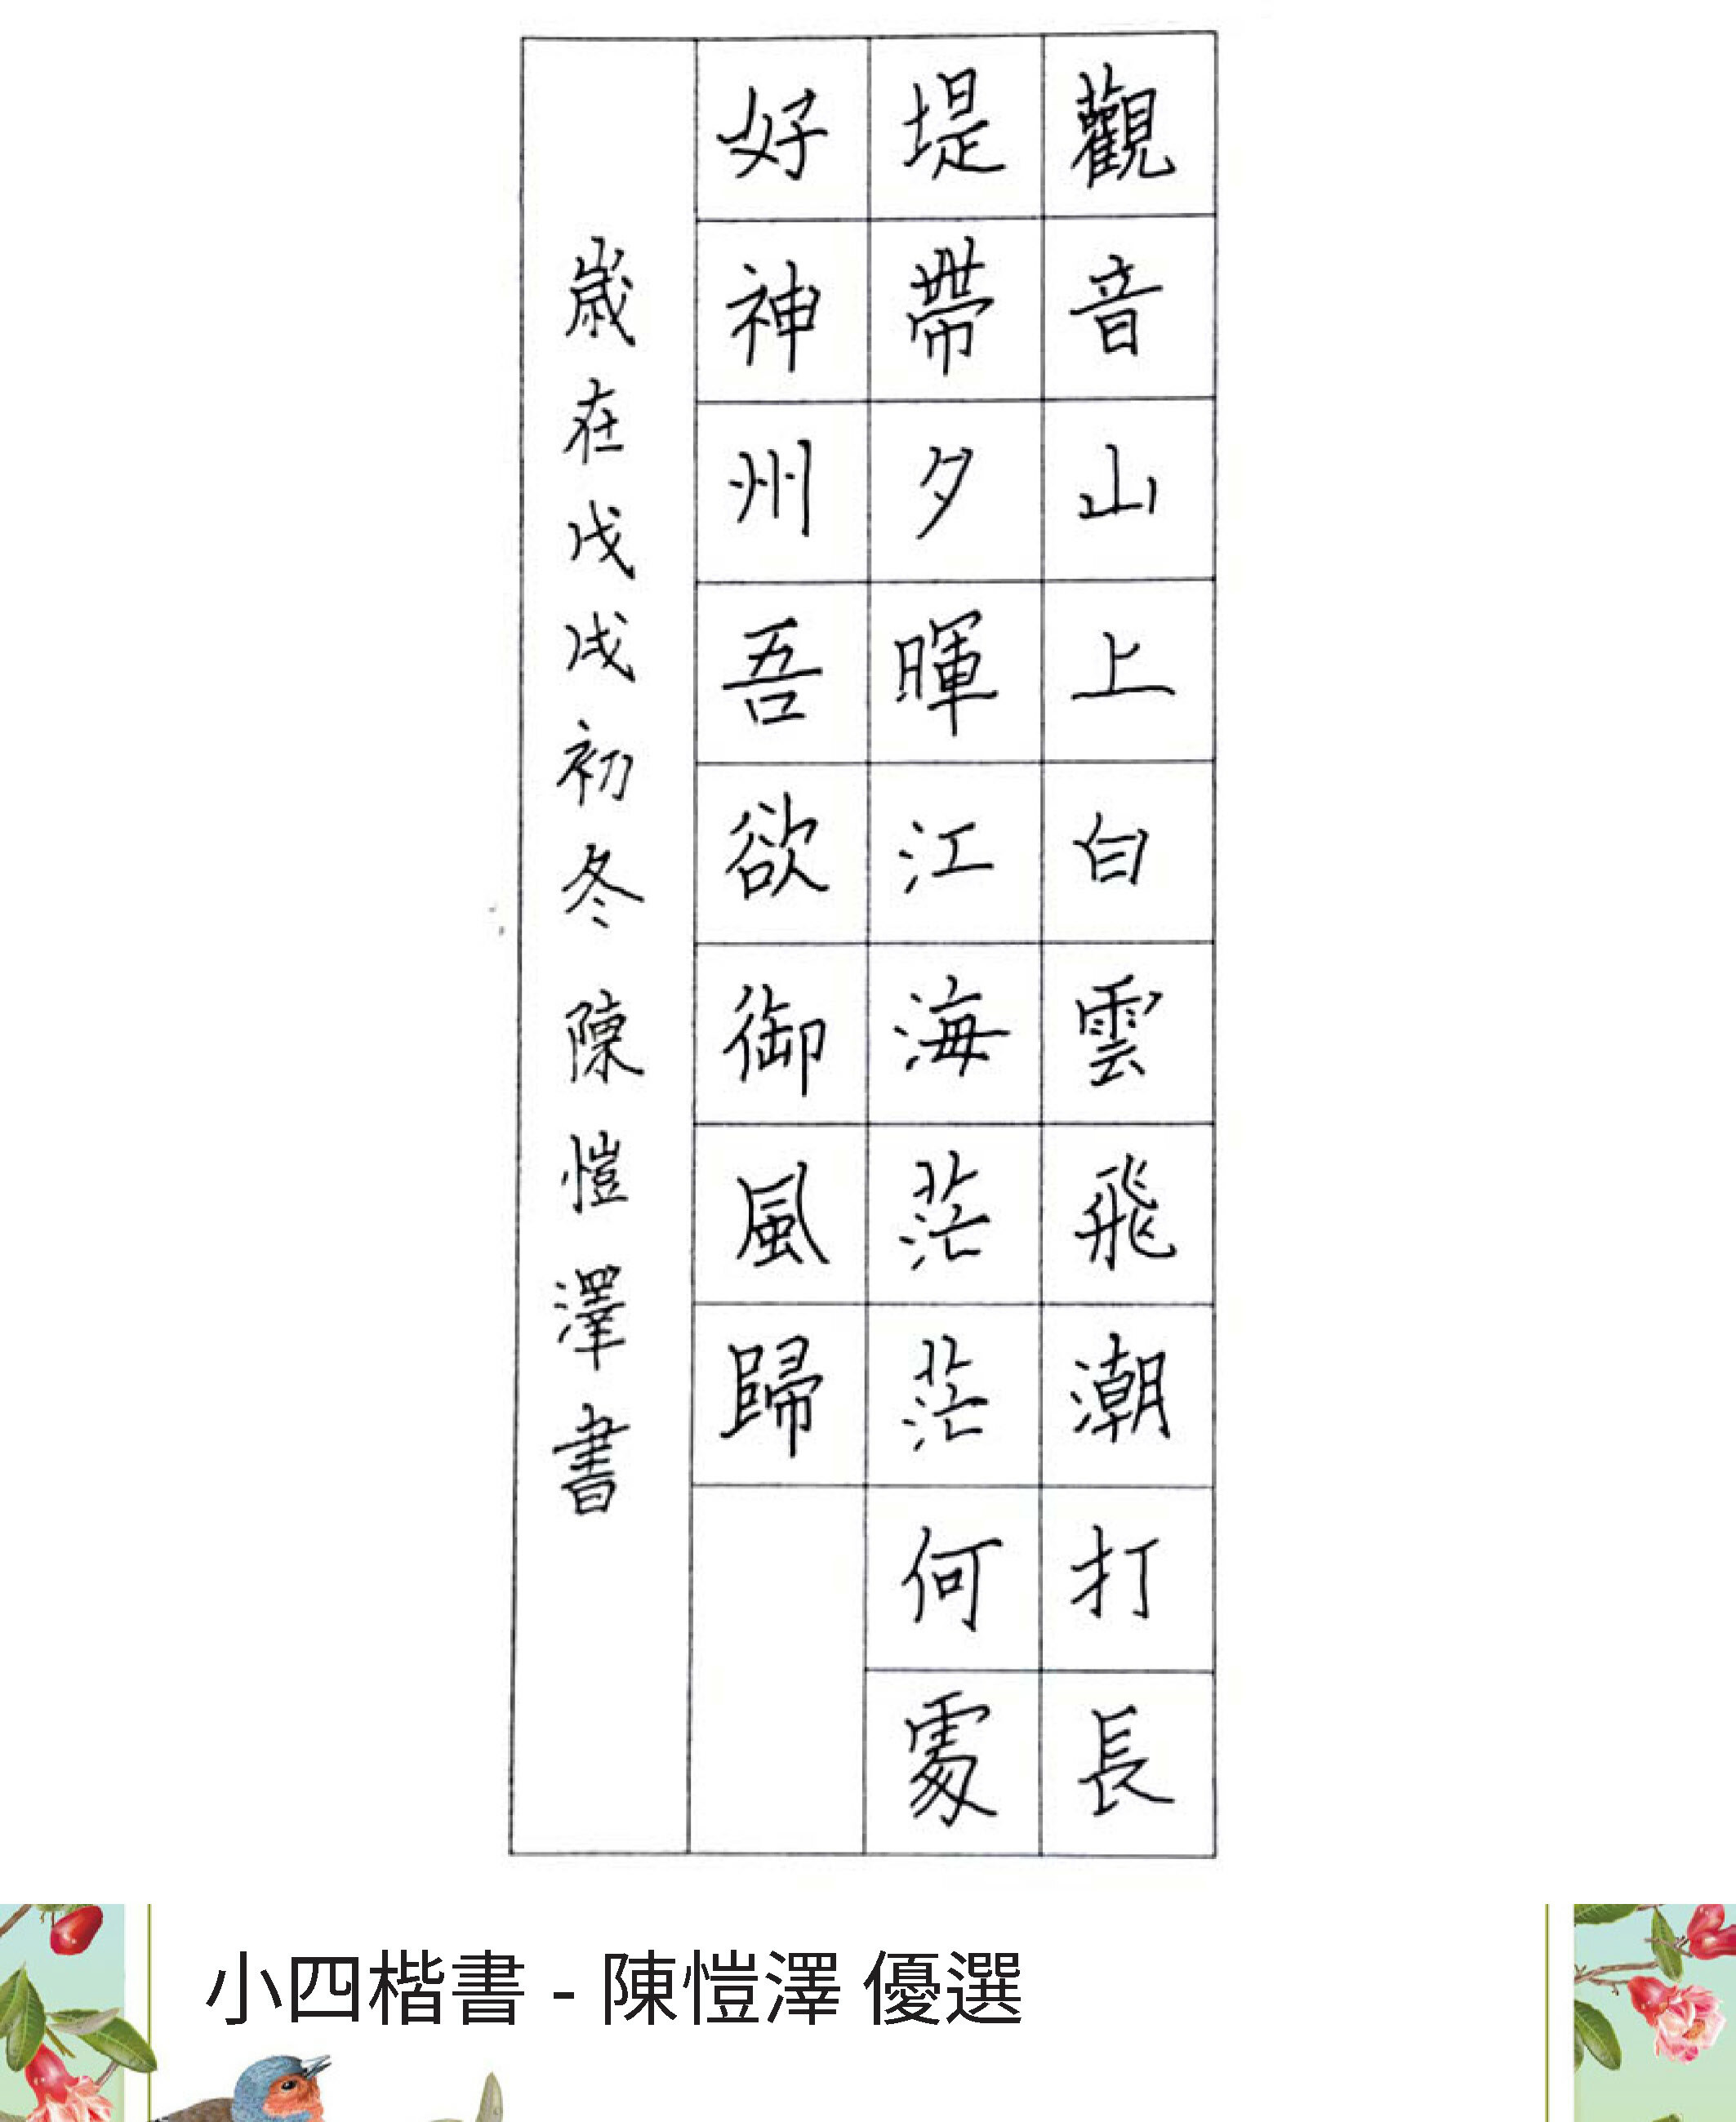 觀音山上白雲飛潮打長
堤帶夕暉江海茫茫何處
好神州吾欲御風歸
歲在戊戌初冬陳愷澤書
小四楷書 - 陳愷澤 優選